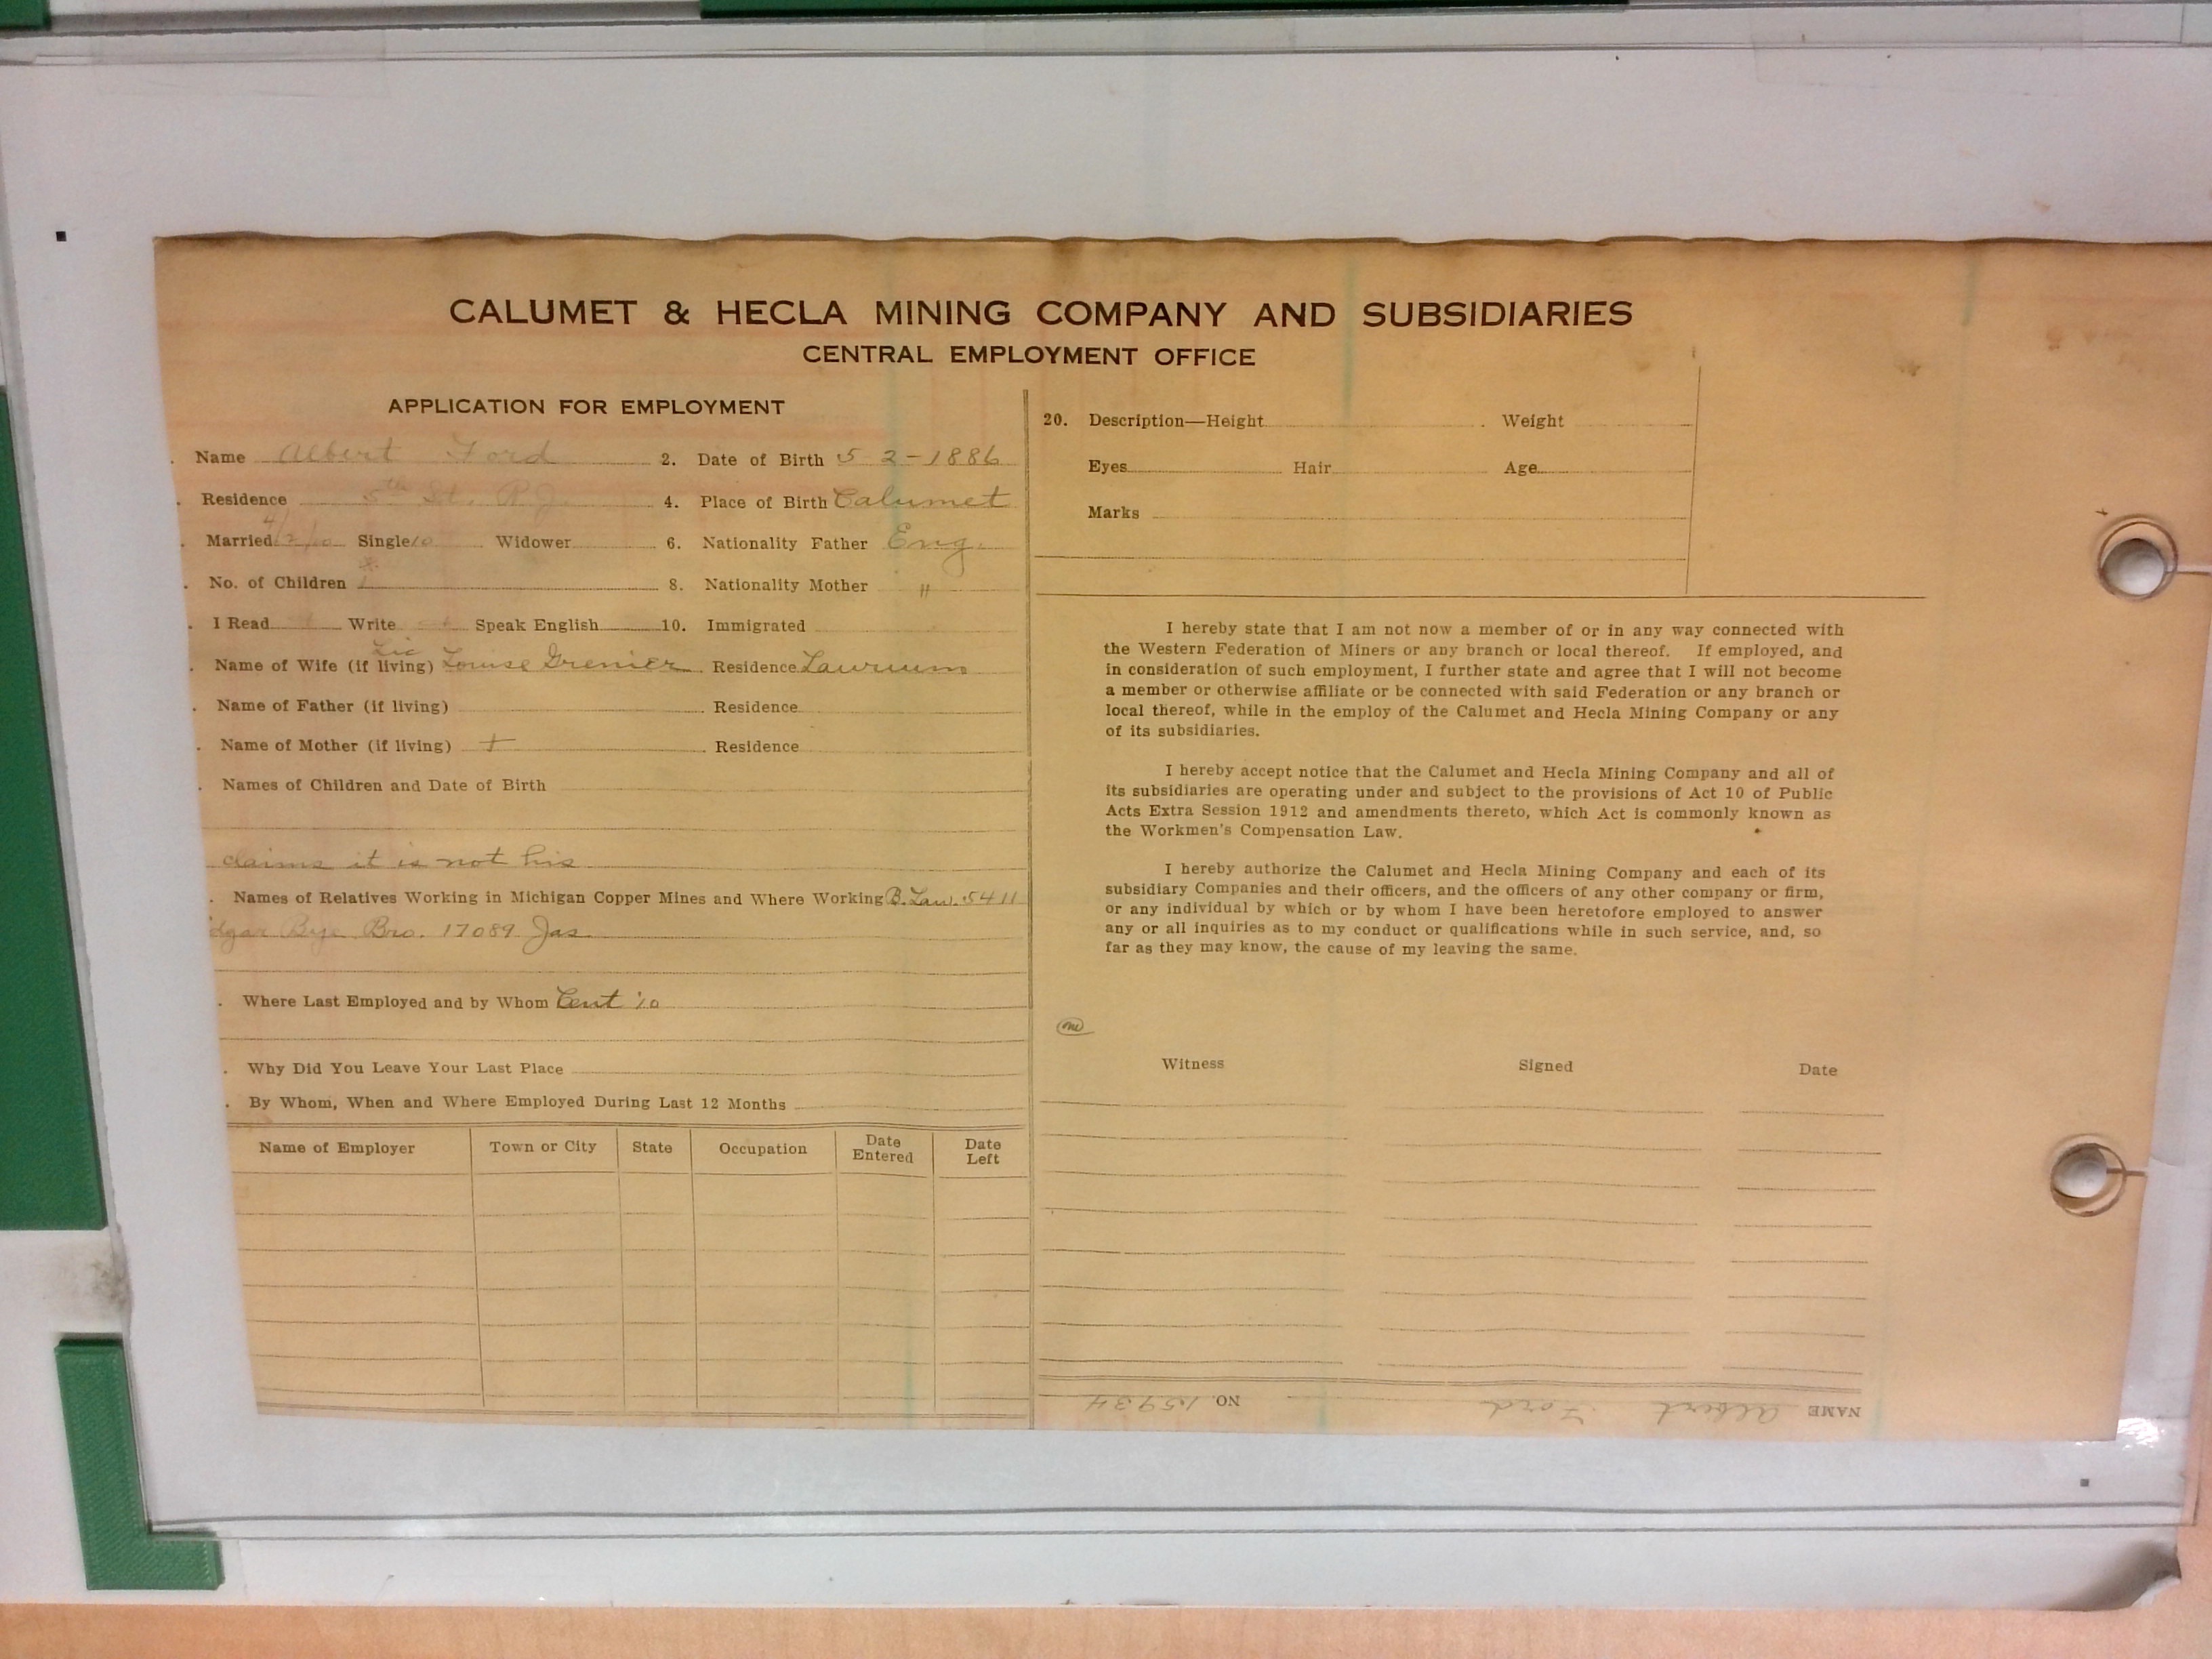 CALUMET & HECLA MINING COMPANY AND SUBSIDIARIES
CENTRAL EMPLOYMENT OFFICE
APPLICATION FOR EMPLOYMENT
. Name Albert Ford 2. Date of Birth 5 2-1886
. Residence 5th St. R.J. 4. Place of Birth Calumet
. Married Single 10 Widower 6. Nationality Father Eng.
. No. of Children 1 8. Nationality Mother "
. I Read Write Speak English 10. Immigrated
. Name of Wife (if living) Louise Grenier Residence Laurium
. Name of Father (if living) Residence
. Name of Mother (if living) + Residence
. Names of Children and Date of Birth
claims it is not his
. Names of Relatives Working in Michigan Copper Mines and Where Working B. Law. 5411
dgar Bye Bro. 17089 Jas.
. Where Last Employed and by Whom Cent '10
. Why Did You Leave Your Last Place
. By Whom, When and Where Employed During Last 12 Months
Name of Employer Town or City State Occupation Date Entered Date Left
20. Description—Height Weight
Eyes Hair Age
Marks
I hereby state that I am not now a member of or in any way connected with
the Western Federation of Miners or any branch or local thereof. If employed, and
in consideration of such employment, I further state and agree that I will not become
a member or otherwise affiliate or be connected with said Federation or any branch or
local thereof, while in the employ of the Calumet and Hecla Mining Company or any
of its subsidiaries.
I hereby accept notice that the Calumet and Hecla Mining Company and all of
its subsidiaries are operating under and subject to the provisions of Act 10 of Public
Acts Extra Session 1912 and amendments thereto, which Act is commonly known as
the Workmen's Compensation Law.
I hereby authorize the Calumet and Hecla Mining Company and each of its
subsidiary Companies and their officers, and the officers of any other company or firm,
or any individual by which or by whom I have been heretofore employed to answer
any or all inquiries as to my conduct or qualifications while in such service, and, so
far as they may know, the cause of my leaving the same.
Witness Signed Date
NAME Albert Ford NO. 15934